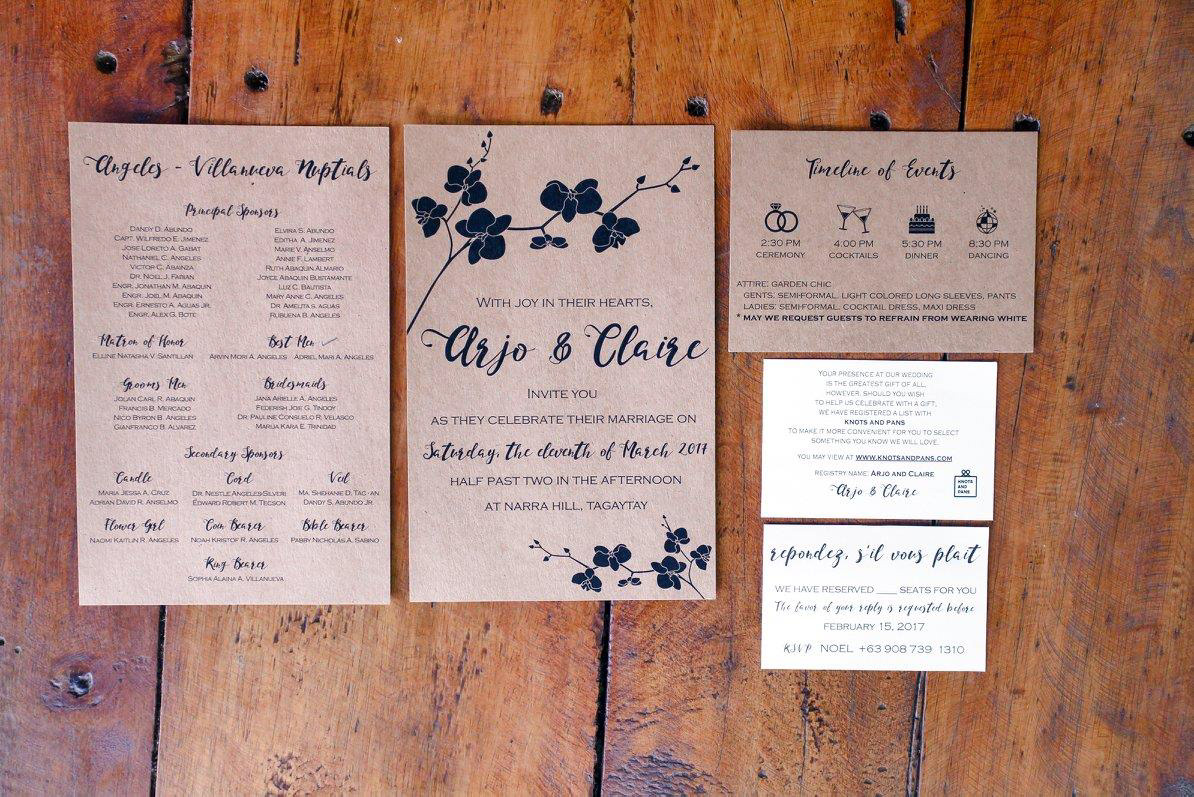 Angeles - Villanueva Nuptials
Principal Sponsors
DANDY D. ABUNDO
CAPT. WILFREDO E. JIMENEZ
JOSE LORETO A. GABAT
NATHANIEL C. ANGELES
VICTOR C. ABAINZA
DR. NOEL J. FABIAN
ENGR. JONATHAN M. ABAQUIN
ENGR. JOEL M. ABAQUIN
ENGR. ERNESTO A. AGUAS JR.
ENGR. ALEX G. BOTE
ELVIRA S. ABUNDO
EDITHA A. JIMENEZ
MARIE V. ANSELMO
ANNIE F. LAMBERT
RUTH ABAQUIN ALMARIO
JOYCE ABAQUIN BUSTAMANTE
LUZ C. BAUTISTA
MARY ANNE C. ANGELES
DR. AMELITA S. AGUAS
RUBUENA B. ANGELES
Matron of Honor
ELLINE NATASHA V. SANTILLAN
Best Men
ARVIN MORI A. ANGELES ADRIEL MARI A. ANGELES
Grooms Men
JOLAN CARL R. ABAQUIN
FRANCIS B. MERCADO
NICO BYRON B. ANGELES
GIANFRANCO B. ALVAREZ
Bridesmaids
JANA ARIELLE A. ANGELES
FEDERISH JOIE G. TINDOY
DR. PAULINE CONSUELO R. VELASCO
MARIJA KARA E. TRINIDAD
Secondary Sponsors
Candle
MARIA JESSA A. CRUZ
ADRIAN DAVID R. ANSELMO
Cord
DR. NESTLE ANGELES
EDWARD ROBERT M. TECSON
Veil
MA. SHEHANIE D.
DANDY S. ABUNDO JR.
Flower Girl
NAOMI KAITLIN R. ANGELES
Coin Bearer
NOAH KRISTOF R. ANGELES
Bible Bearer
PABBY NICHOLAS A. SABINO
Ring Bearer
SOPHIA ALAINA A. VILLANUEVA
WITH JOY IN THEIR HEARTS,
Arjo & Claire
INVITE YOU
AS THEY CELEBRATE THEIR MARRIAGE ON
Saturday, the eleventh of March 2017
HALF PAST TWO IN THE AFTERNOON
AT NARRA HILL, TAGAYTAY
Timeline of Events
2:30 PM 4:00 PM 5:30 PM 8:30 PM
CEREMONY COCKTAILS DINNER DANCING
ATTIRE: GARDEN CHIC
GENTS: SEMI-FORMAL. LIGHT COLORED LONG SLEEVES, PANTS
LADIES: SEMI-FORMAL. COCKTAIL DRESS, MAXI DRESS
* MAY WE REQUEST GUESTS TO REFRAIN FROM WEARING WHITE
YOUR PRESENCE AT OUR WEDDING
IS THE GREATEST GIFT OF ALL,
HOWEVER, SHOULD YOU WISH
TO HELP US CELEBRATE WITH A GIFT,
WE HAVE REGISTERED A LIST WITH
KNOTS AND PANS
TO MAKE IT MORE CONVENIENT FOR YOU TO SELECT
SOMETHING YOU KNOW WE WILL LOVE.
YOU MAY VIEW AT WWW.KNOTSANDPANS.COM
REGISTRY NAME: ARJO AND CLAIRE
Arjo & Claire
KNOTS
AND
PANS
repondez, s'il vous plait
WE HAVE RESERVED ____ SEATS FOR YOU
The favor of your reply is requested before
FEBRUARY 15, 2017
RSVP NOEL +63 908 739 1310